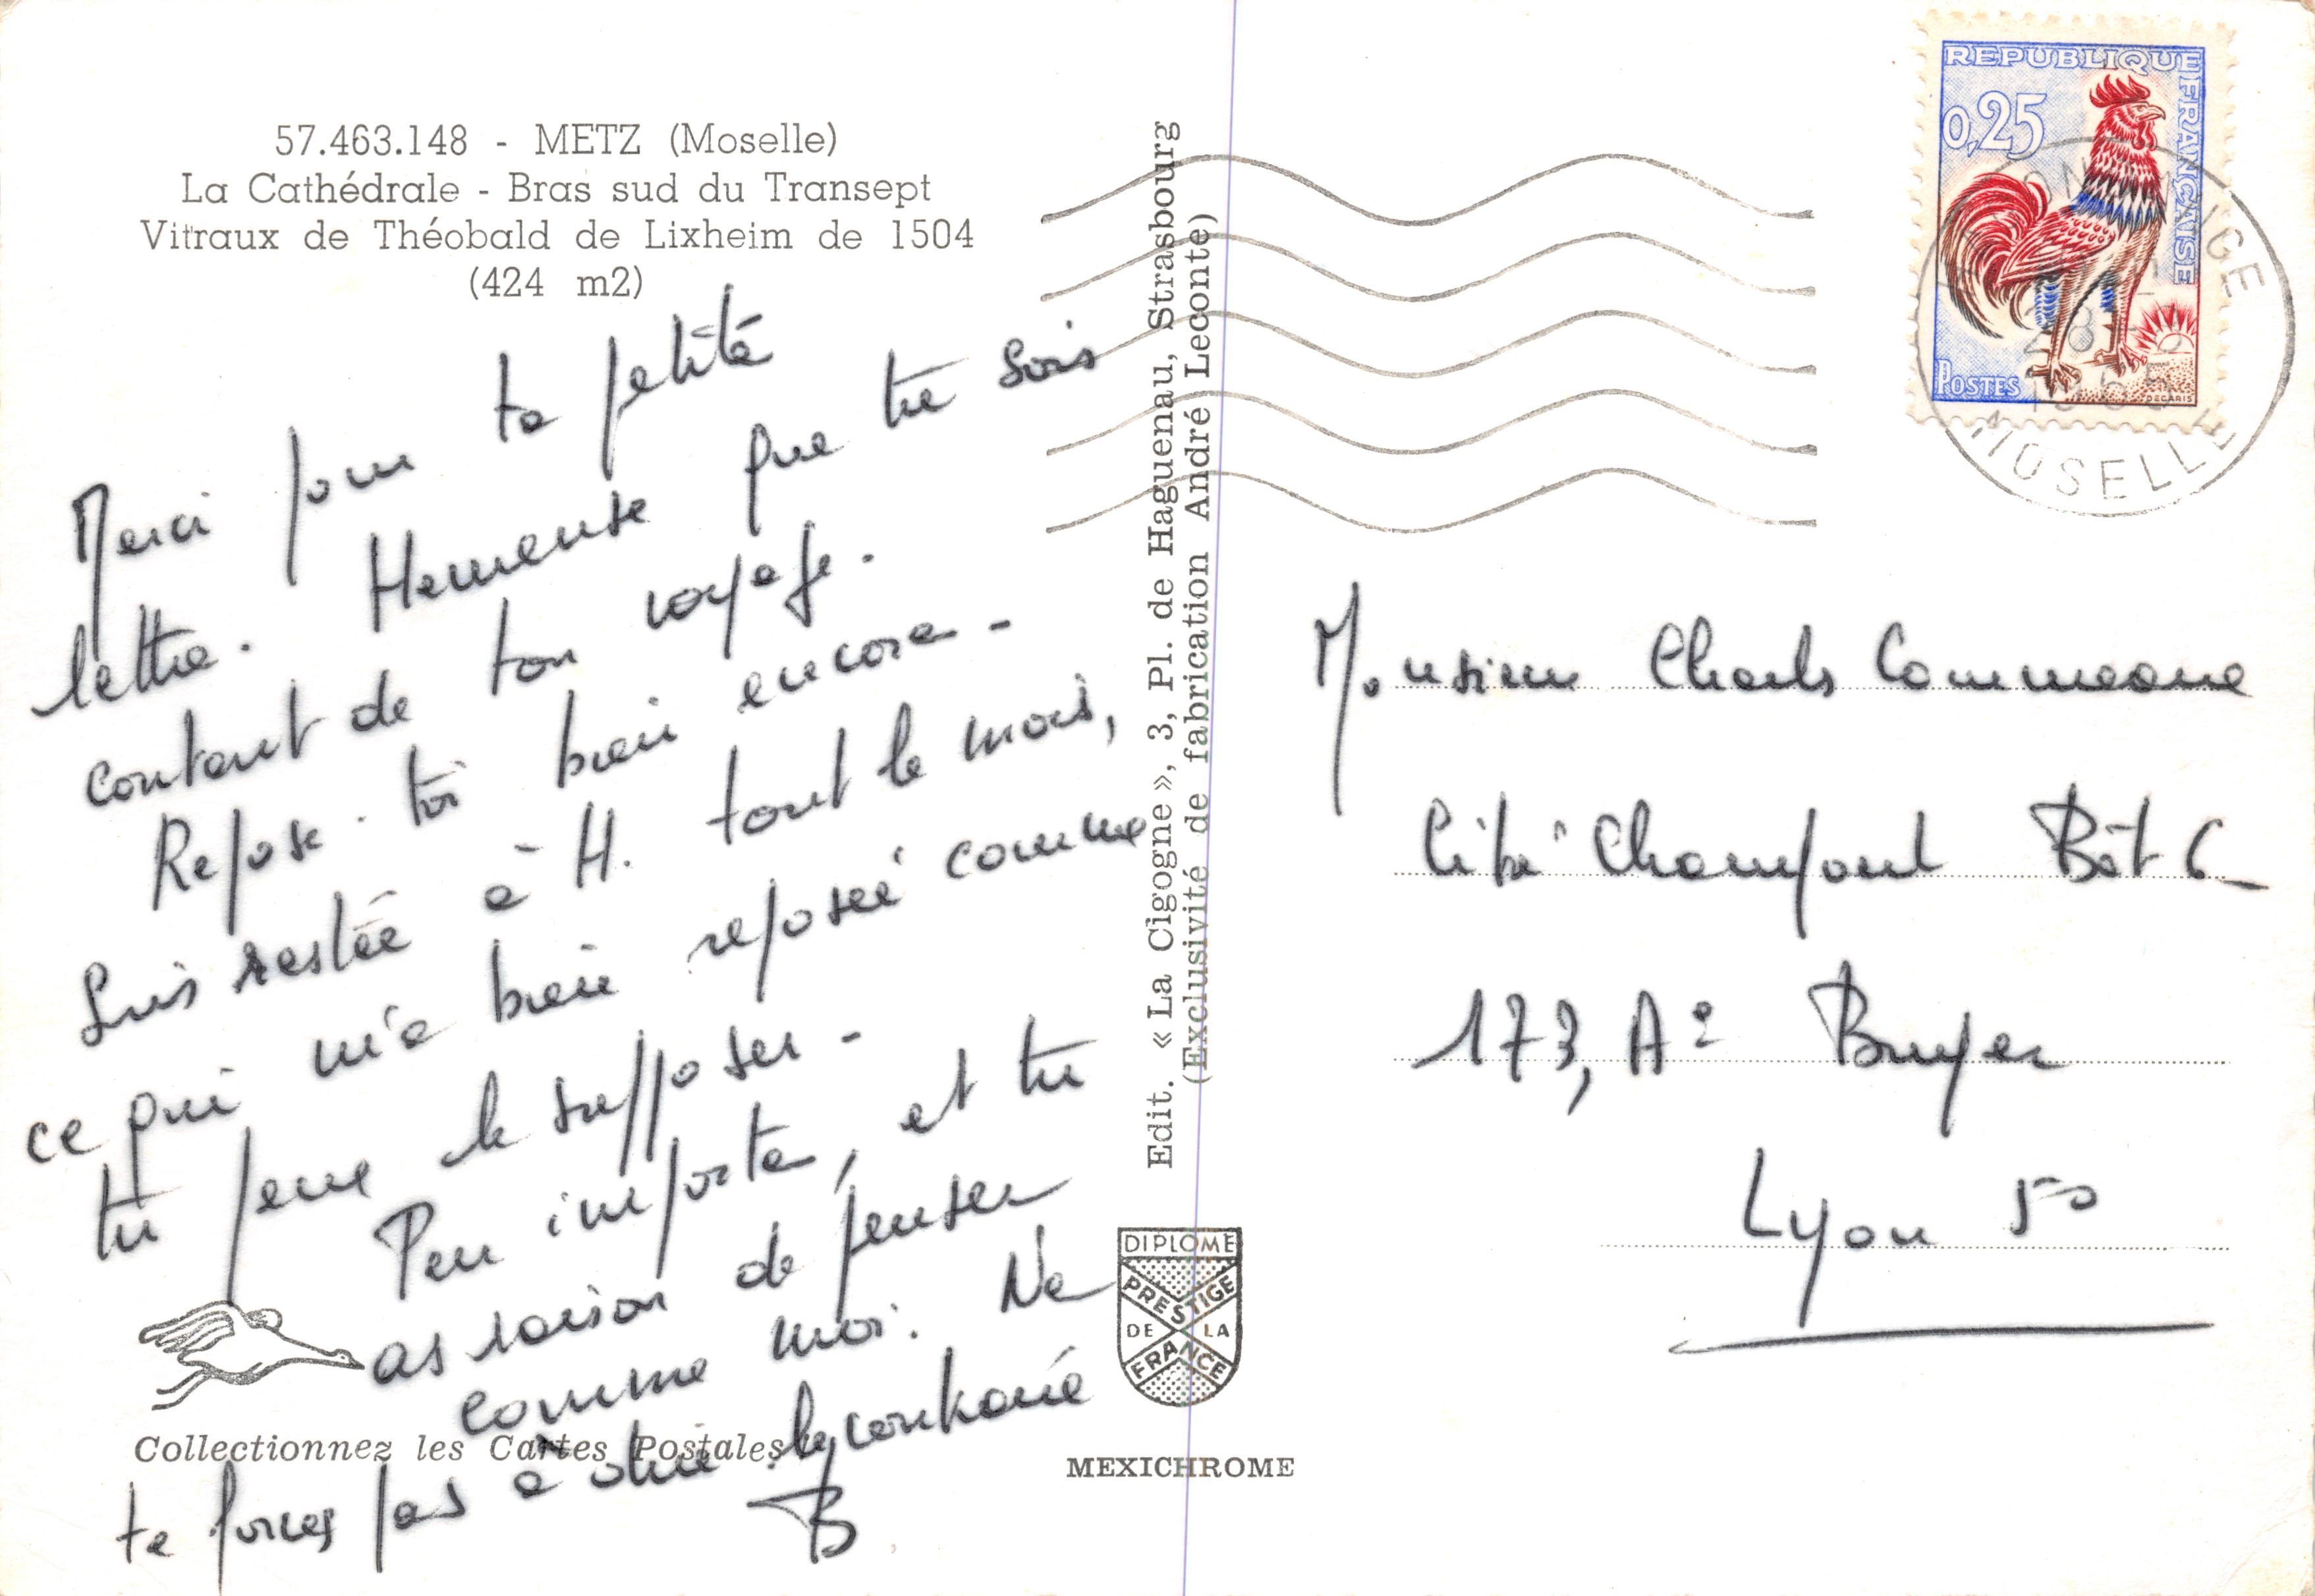 57.463.148 - METZ (Moselle)
La Cathédrale - Bras sud du Transept
Vitraux de Théobald de Lixheim de 1504
(424 m2)
Merci pour ta petite
lettre. Heureuse que tu sois
content de ton voyage.
Repose-toi bien encore -
Suis restée à H. tout le mois,
ce qui m'a bien reposée comme
tu peux le supposer -
Peu importe, et tu
as raison de penser
comme moi. Ne
te forces pas à dire le contraire
B
Collectionnez les Cartes Postales
Edit. « La Cigogne », 3, Pl. de Haguenau, Strasbourg
(Exclusivité de fabrication André Leconte)
DIPLOME
PRESTIGE
DE LA
FRANCE
MEXICHROME
REPUBLIQUE FRANÇAISE
0,25
POSTES
DECARIS
28
1965
MOSELLE
Monsieur Charles
Cité Bât C
173, Ae
Lyon 5e